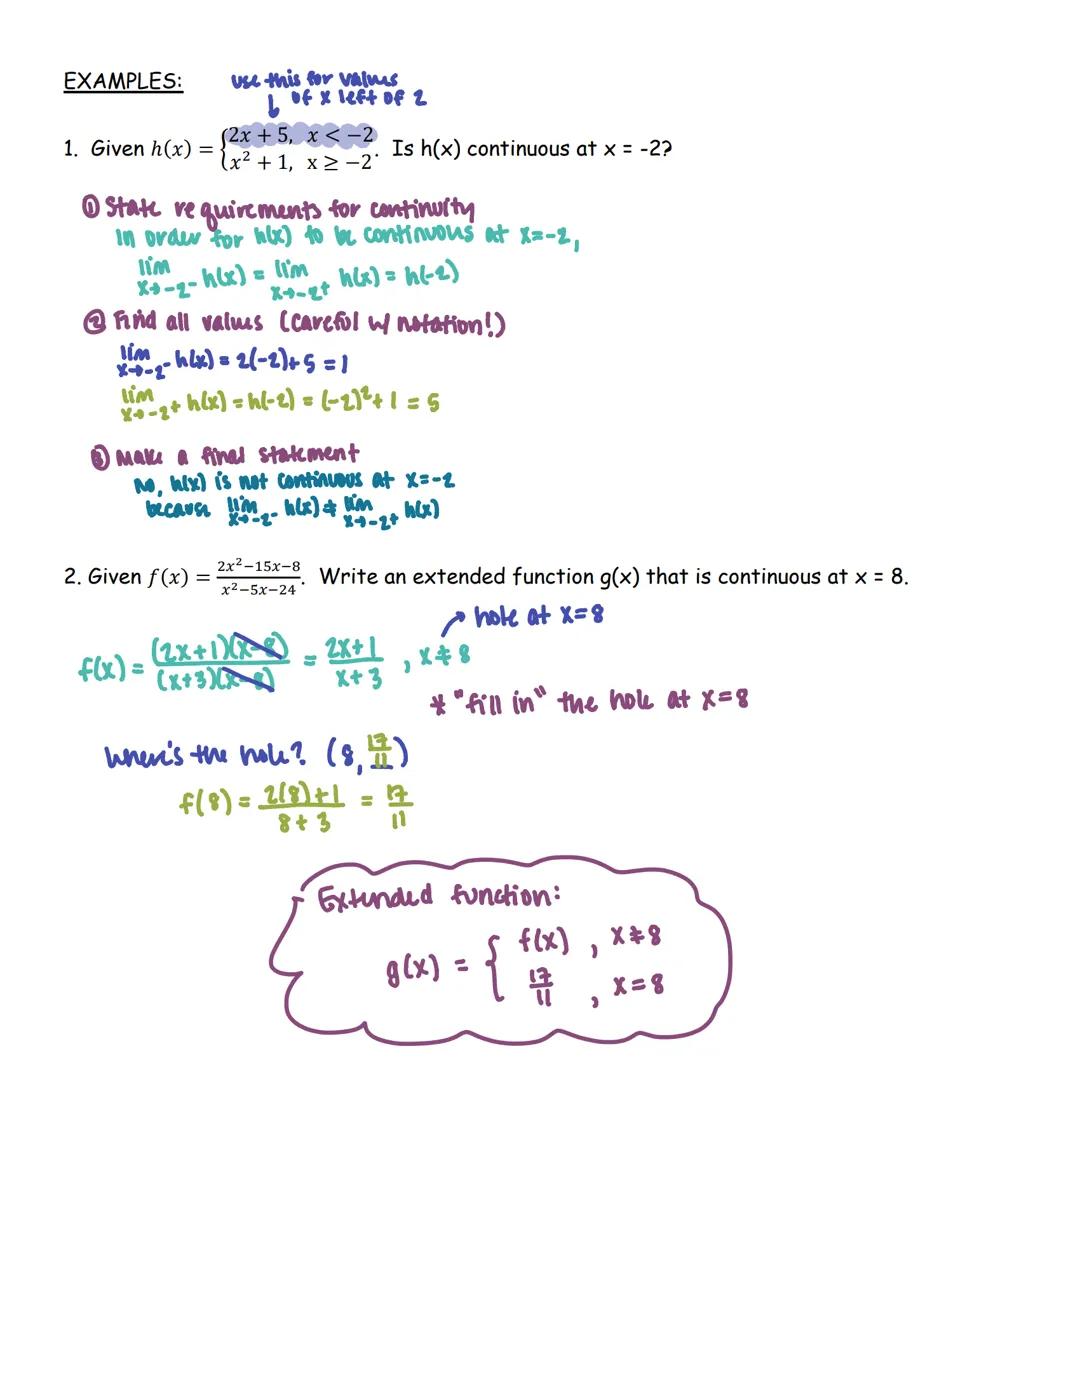 EXAMPLES:
use this for values
↓ of x left of 2
1. Given h(x) = {2x + 5, x < −2
x² + 1, x ≥ −2. Is h(x) continuous at x = -2?
① State requirements for continuity
In order for h(x) to be continuous at x=-2,
lim x→-2⁻ h(x) = lim x→-2⁺ h(x) = h(-2)
② Find all values (careful w/ notation!)
lim x→-2⁻ h(x) = 2(-2)+5 = 1
lim x→-2⁺ h(x) = h(-2) = (-2)²+1 = 5
③ Make a final statement
No, h(x) is not continuous at x=-2
because lim x→-2⁻ h(x) ≠ lim x→-2⁺ h(x)
2. Given f(x) = (2x²−15x−8)/(x²−5x−24). Write an extended function g(x) that is continuous at x = 8.
→ hole at x=8
f(x) = ((2x+1)(x-8))/((x+3)(x-8)) = (2x+1)/(x+3), x≠8
* "fill in" the hole at x=8
Where's the hole? (8, 17/11)
f(8) = (2(8)+1)/(8+3) = 17/11
Extended function:
g(x) = { f(x), x≠8
17/11, x=8